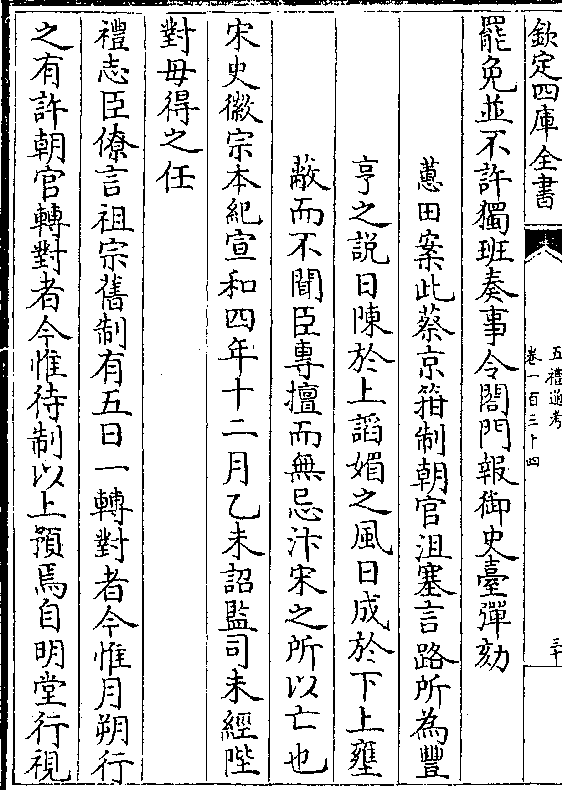 欽定四庫全書
五禮通考
卷一百三十四
三十
罷免並不許獨班奏事令閤門報御史臺彈劾
蕙田案此蔡京箝制朝官沮塞言路所為豐
亨之說日陳於上謟媚之風日成於下上壅
蔽而不聞臣專擅而無忌汴宋之所以亡也
宋史徽宗本紀宣和四年十二月乙未詔監司未經陛
對毋得之任
禮志臣僚言祖宗舊制有五日一轉對者今惟月朔行
之有許朝官轉對者今惟待制以上預焉自明堂行視